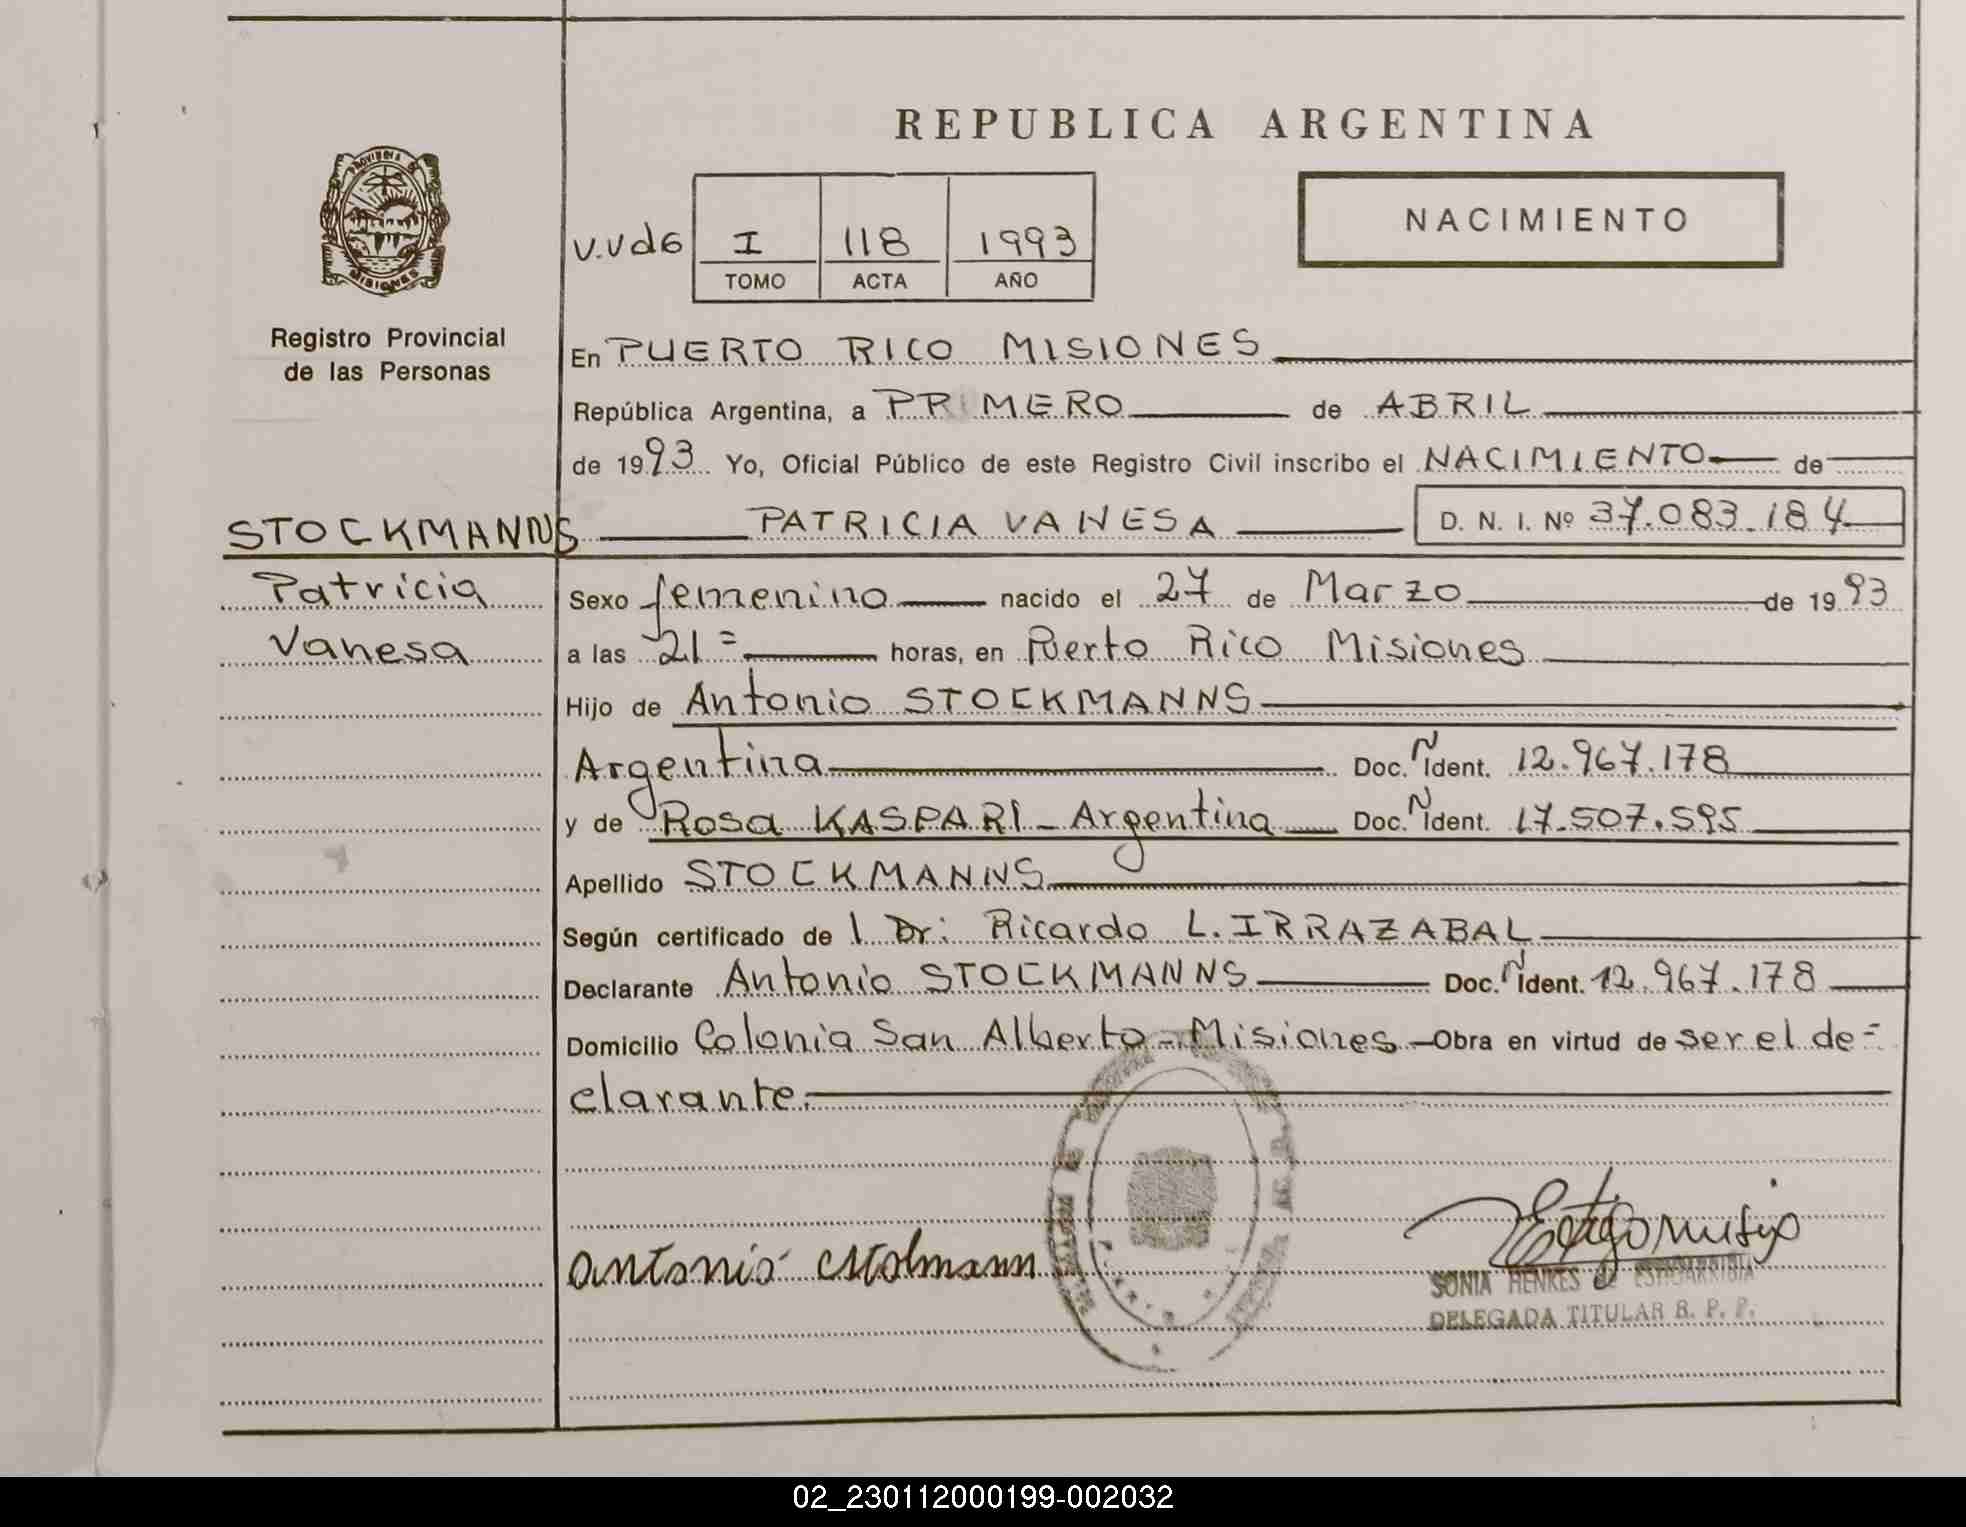 REPUBLICA ARGENTINA
PROVINCIA DE
MISIONES
Registro Provincial
de las Personas
NACIMIENTO
V.Vd6 I 118 1993
TOMO ACTA AÑO
En PUERTO RICO MISIONES
República Argentina, a PRIMERO de ABRIL
de 1993 Yo, Oficial Público de este Registro Civil inscribo el NACIMIENTO de
STOCKMANNS PATRICIA VANESA D. N. I. Nº 37.083.184
Patricia
Vanesa
Sexo femenino nacido el 27 de Marzo de 1993
a las 21= horas, en Puerto Rico Misiones
Hijo de Antonio STOCKMANNS
Argentina Doc. N Ident. 12.967.178
y de Rosa KASPARI - Argentina Doc. N Ident. 17.507.595
Apellido STOCKMANNS
Según certificado de l Dr: Ricardo L. IRRAZABAL
Declarante Antonio STOCKMANNS Doc. N Ident. 12.967.178
Domicilio Colonia San Alberto - Misiones - Obra en virtud de ser el de=
clarante.
antonio
SONIA HENKES de
DELEGADA TITULAR R. P. P.
02_230112000199-002032